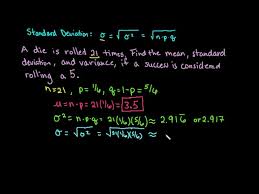 Standard Deviation: σ = √σ² = √n·p·q
A die is rolled 21 times. Find the mean, standard
deviation, and variance, if a success is considered
rolling a 5.
n=21, p=1/6, q=1-p=5/6
μ=n·p=21(1/6)=3.5
σ²=n·p·q=21(1/6)(5/6)≈2.916̄ or 2.917
σ=√σ²=√21(1/6)(5/6)≈